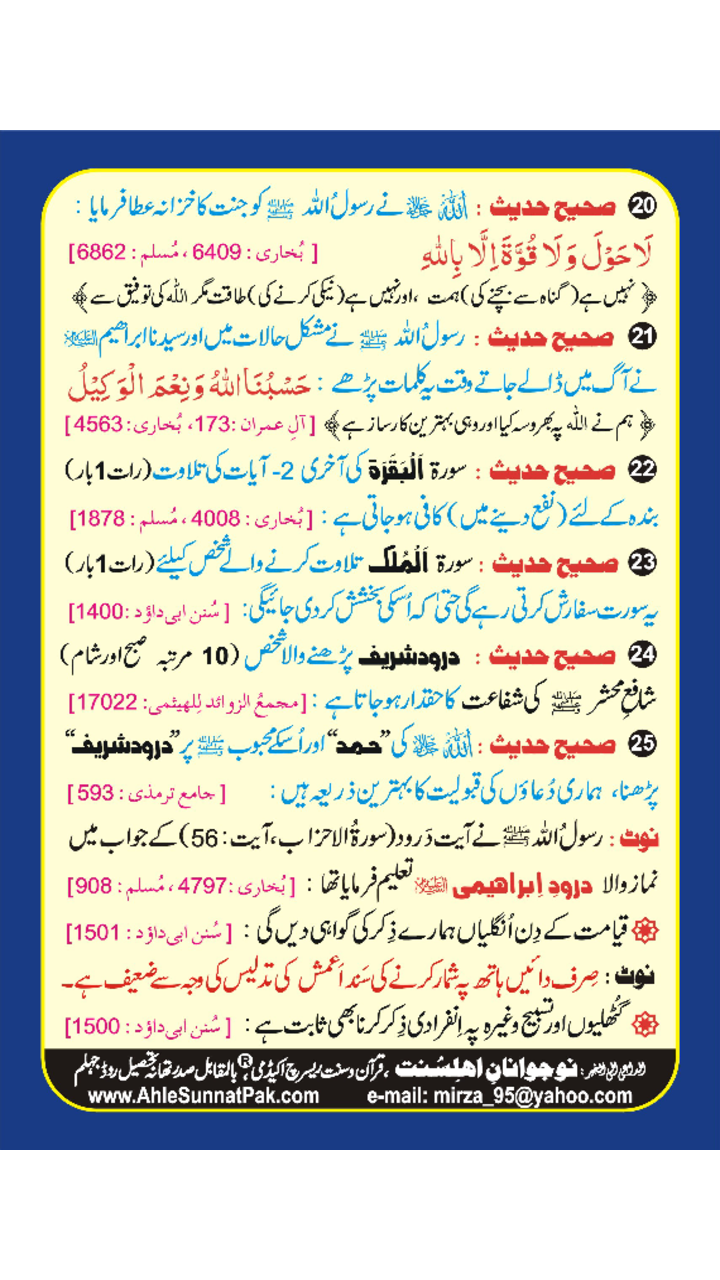 20 صحیح حدیث : اللہ ﷻ نے رسولُ اللہ ﷺ کو جنت کا خزانہ عطا فرمایا :
لَا حَوْلَ وَلَا قُوَّةَ اِلَّا بِاللهِ [ بُخاری : 6409 ، مُسلم : 6862]
﴿ نہیں ہے( گناہ سے بچنے کی) ہمت ، اورنہیں ہے( نیکی کرنے کی )طاقت مگر اللہ کی توفیق سے ﴾
21 صحیح حدیث : رسولُ اللہ ﷺ نے مشکل حالات میں اور سیدنا ابراھیم علیہ السلام
نے آگ میں ڈالے جاتے وقت یہ کلمات پڑھے : حَسْبُنَا اللهُ وَنِعْمَ الْوَكِيْلُ
﴿ ہم نے اللہ پہ بھروسہ کیا اور وہی بہترین کارساز ہے ﴾ [آلِ عمران :173، بُخاری: 4563]
22 صحیح حدیث : سورة اَلْبَقَرَة کی آخری 2- آیات کی تلاوت (رات 1بار)
بندہ کے لئے ( نفع دینے میں ) کافی ہو جاتی ہے : [بُخاری : 4008 ، مُسلم : 1878]
23 صحیح حدیث : سورة اَلْمُلْک تلاوت کرنے والے شخص کیلئے (رات 1بار)
یہ سورت سفارش کرتی رہے گی حتیٰ کہ اُسکی بخشش کر دی جائیگی: [سُنن ابی داؤد :1400]
24 صحیح حدیث : درود شریف پڑھنے والا شخص (10 مرتبہ صبح اور شام)
شافعِ محشر ﷺ کی شفاعت کا حقدار ہو جاتا ہے : [مجمعُ الزوائد لِلهيثمی: 17022]
25 صحیح حدیث : اللہ ﷻ کی ”حمد“ اور اُسکے محبوب ﷺ پر ”درود شریف“
پڑھنا، ہماری دُعاؤں کی قبولیت کا بہترین ذریعہ ہیں : [جامع ترمذی : 593]
نوٹ : رسولُ اللہ ﷺ نے آیت دَرود (سورۃُ الاحزاب ، آیت : 56) کے جواب میں
نماز والا درودِ اِبراهیمی علیہ السلام تعلیم فرمایا تھا : [بُخاری :4797 ، مُسلم : 908]
قیامت کے دِن اُنگلیاں ہمارے ذِکر کی گواہی دیں گی : [سُنن ابی داؤد : 1501]
نوٹ : صِرف دائیں ہاتھ پہ شمار کرنے کی سَند اَعمش کی تدلیس کی وجہ سے ضعیف ہے۔
گٹھلیوں اور تسبیح وغیرہ پہ اِنفرادی ذِکر کرنا بھی ثابت ہے : [سُنن ابی داؤد : 1500]
نوجوانانِ اهلِسُنت ، قرآن و سنت ریسرچ اکیڈمی ® بالمقابل صدر تھانہ تحصیل روڈ جہلم
www.AhleSunnatPak.com e-mail: mirza_95@yahoo.com